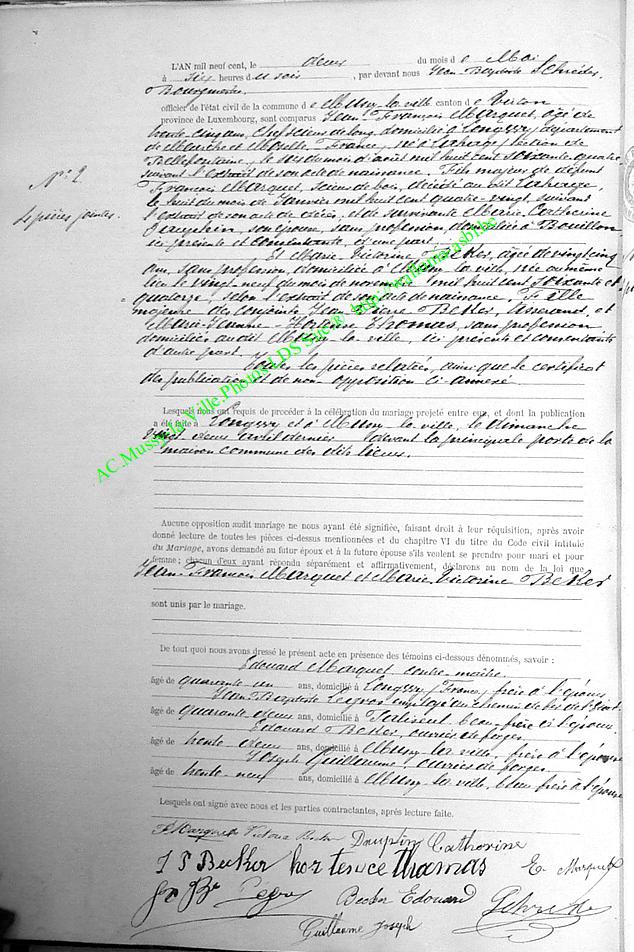 L'AN mil neuf cent, le deux du mois de Mai
à six heures du soir, par devant nous Jean Baptiste
Bourgmestre
officier de l'état civil de la commune de Mussy la ville canton de Virton
province de Luxembourg, sont comparus Jean François Marquet, âgé de
trente cinq ans, Chef scieur de long, domicilié à Longwy, département
de Meurthe et Moselle, France, né à section de
Bellefontaine, le du mois d'août mil huit cent soixante quatre
suivant l'extrait de son acte de naissance. Fils majeur de défunt
François Marquet, scieur de bois, décédé au dit
le huit du mois de Janvier mil huit cent quatre vingt, suivant
l'extrait de son acte de décès, et de survivante Marie Catherine
Dauphin, son épouse, sans profession, domiciliée à Bouillon
ici présente et consentante, d'une part,
Nº 2
4 pièces jointes.
Et Marie Victorine Beker, âgée de vingt cinq
ans, sans profession, domiciliée à Mussy la ville, née au même
lieu le vingt neuf du mois de novembre mil huit cent soixante et
quatorze, selon l'extrait de son acte de naissance. Fille
majeure des conjoints Jean Pierre Beker, et
Marie Jeanne Hortense Thomas, sans profession
domiciliés audit Mussy la ville, ici présents et consentants
d'autre part.
Toutes les pièces relatées, ainsi que le certificat
des publications et de non opposition ci annexé
AC.Mussy la Ville.Photos LDS Site@: http://wallonia.asbl.be
Lesquels nous ont requis de procéder à la célébration du mariage projeté entre eux, et dont la publication
a été faite à Longwy et à Mussy la ville, le dimanche
vingt deux avril dernier devant la principale porte de la
maison commune des dits lieux.
Aucune opposition audit mariage ne nous ayant été signifiée, faisant droit à leur réquisition, après avoir
donné lecture de toutes les pièces ci-dessus mentionnées et du chapitre VI du titre du Code civil intitulé
du Mariage, avons demandé au futur époux et à la future épouse s'ils veulent se prendre pour mari et pour
femme ; chacun d'eux ayant répondu séparément et affirmativement, déclarons au nom de la loi que
Jean François Marquet et Marie Victorine Beker
sont unis par le mariage.
De tout quoi nous avons dressé le présent acte en présence des témoins ci-dessous dénommés, savoir :
Edouard Marquet contre maître
âgé de quarante un ans, domicilié à Longwy, France, frère à l'époux
Jean Baptiste employé au chemin de fer de l'
âgé de quarante deux ans, domicilié à beau-frère à l'époux
Edouard Beker, ouvrier de forges
âgé de trente deux ans, domicilié à Mussy la ville, frère à l'épouse
Joseph Guillaume, ouvrier de forges
âgé de trente neuf ans, domicilié à Mussy la ville, beau frère à l'épouse
Lesquels ont signé avec nous et les parties contractantes, après lecture faite.
F Marquet Victorine Becker Dauphin Catherine
J P Becker hortence thomas E. Marquet
Becker Edouard
Guillaume Joseph